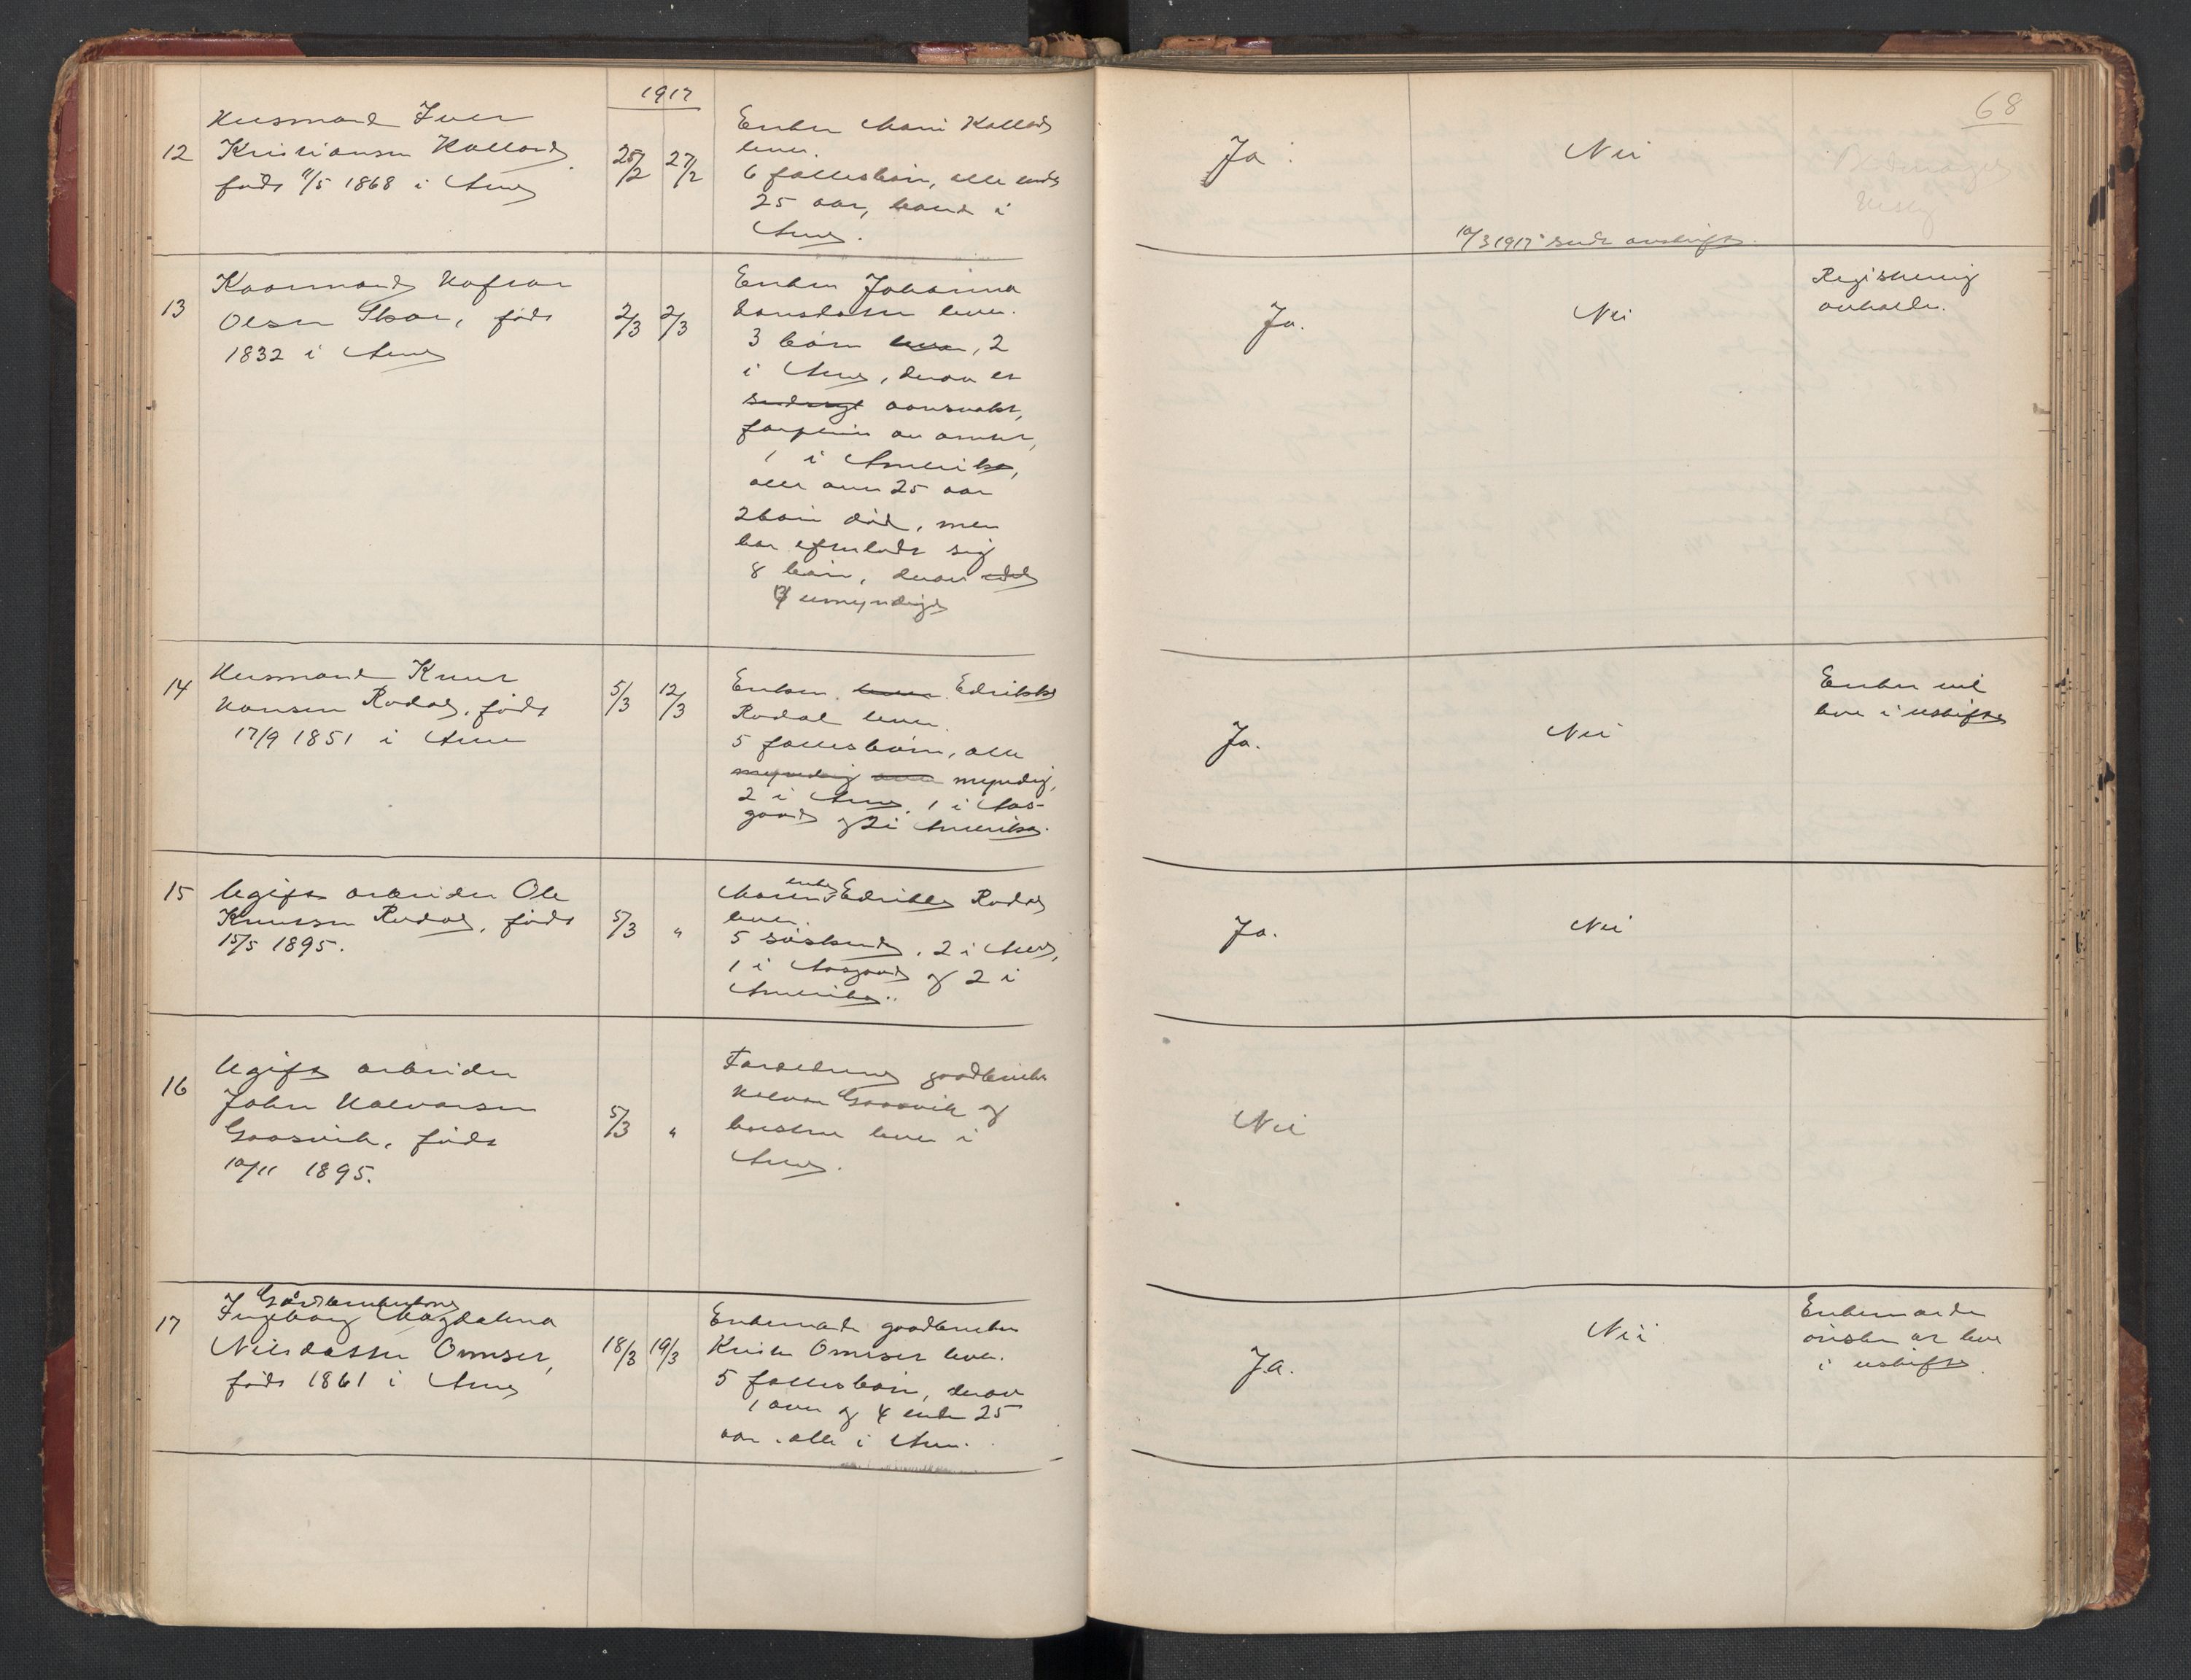 1917
68
12
Husmand Iver
Kristiansen Halland
født 9/5 1868 i Aure
25/2 27/2
Enken Mari Halland
lever.
6 fællesbørn, alle under
25 aar, hand i
Aure.
Ja
Nei
10/3 1917 sendt avskrift
13
Kaarmand Hafsar
Olsen Skar, født
1832 i Aure
2/3 2/3
Enken Johanna
Larsdatter lever.
3 børn lever, 2
i Aure, derav er
sindssyg aansvakt,
forpleies av amtet,
1 i Amerika,
alle over 25 aar
2 børn død, men
har efterladt sig
8 børn, derav
umyndige
Ja.
Nei
Registrering
avholdt.
14
Husmand Knut
Hansen Rodal, født
17/9 1851 i Aure
5/3 12/3
Enken lever Edrikke
Rodal lever.
5 fællesbørn, alle
myndig over myndig,
2 i Aure, 1 i Aas-
gaard og 2 i Amerika.
Ja.
Nei
Enken vil
leve i uskifte
15
Ugift arbeider Ole
Knutsen Rodal, født
15/5 1895.
5/3 "
Moren, enke Edrikke Rodal
lever.
5 søskende, 2 i Aure,
1 i Aasgaard og 2 i
Amerika.
Ja.
Nei
16
Ugift arbeider
John Halvorsen
Gaasvik, født
10/11 1895.
5/3 "
Forældrene gaardbruker
Halvor Gaasvik og
hustru lever i
Aure.
Nei
17
Gårdbrukerkone
Ingeborg Magdalena
Nilsdatter Omsser,
født 1861 i Aure
18/3 19/3
Enkemand gaardbruker
Krister Omsser lever.
5 fællesbørn, derav
1 over og 4 under 25
aar, alle i Aure.
Ja.
Nei
Enkemanden
ønsker at leve
i uskifte